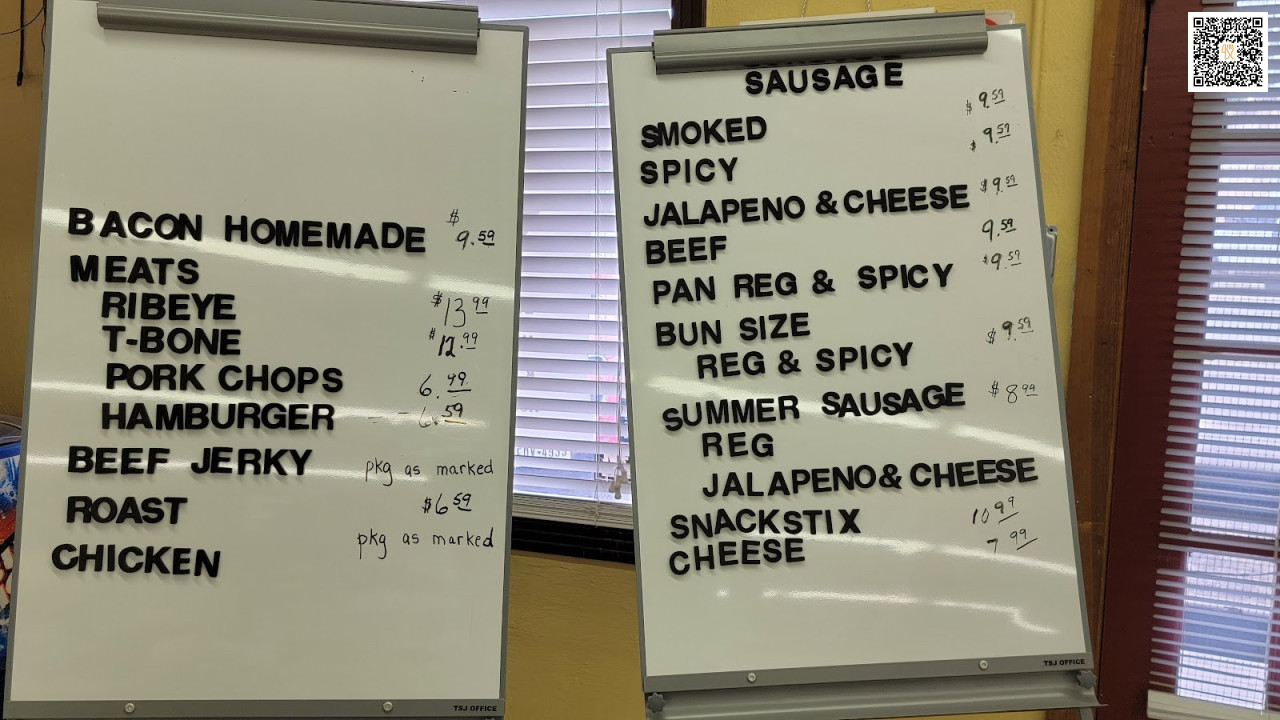 BACON HOMEMADE $ 9.59
MEATS
RIBEYE $13 99
T-BONE $12.99
PORK CHOPS 6.49
HAMBURGER 6.59
BEEF JERKY pkg as marked
ROAST $6 59
CHICKEN pkg as marked
TSJ OFFICE
SAUSAGE
SMOKED $9.59
SPICY $9.59
JALAPENO & CHEESE $9.59
BEEF 9.59
PAN REG & SPICY $9.59
BUN SIZE
REG & SPICY $9.59
SUMMER SAUSAGE $8 99
REG
JALAPENO & CHEESE
SNACKSTIX 10 99
CHEESE 7 99
TSJ OFFICE